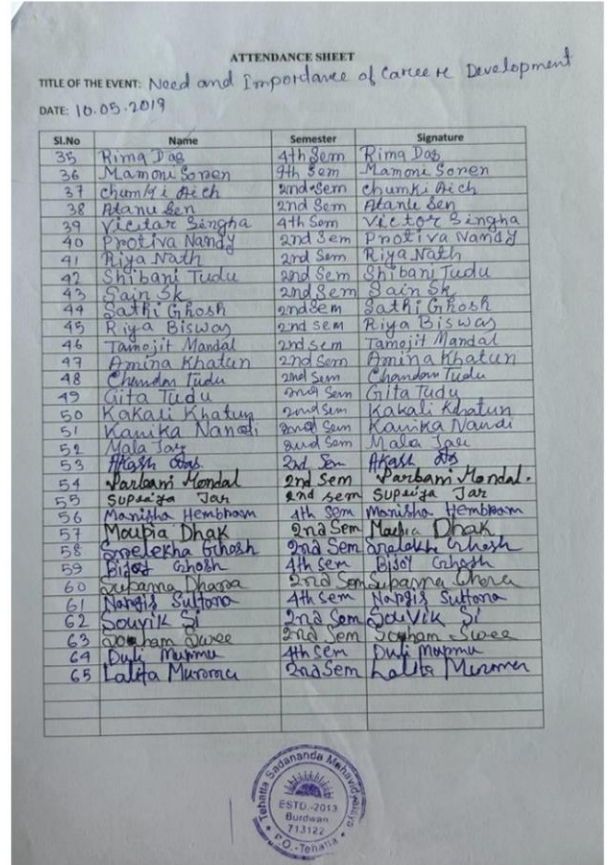 ATTENDANCE SHEET
TITLE OF THE EVENT: Need and Importance of Career Development
DATE: 10.05.2019
Sl.No Name Semester Signature
35 Rima Das 4th Sem Rima Das
36 Mamoni Soren 4th Sem Mamoni Soren
37 Chumki Aich 2nd Sem Chumki Aich
38 Atanu Sen 2nd Sem Atanu Sen
39 Victar Singha 4th Sem Victor Singha
40 Protiva Nandy 2nd Sem Protiva Nandy
41 Riya Nath 2nd Sem Riya Nath
42 Shibani Tudu 2nd Sem Shibani Tudu
43 Sain Sk 2nd Sem Sain Sk
44 Sathi Ghosh 2nd Sem Sathi Ghosh
45 Riya Biswas 2nd sem Riya Biswas
46 Tamojit Mandal 2nd sem Tamojit Mandal
47 Amina Khatun 2nd Sem Amina Khatun
48 Chandan Tudu 2nd Sem Chandan Tudu
49 Gita Tudu 2nd Sem Gita Tudu
50 Kakali Khatun 2nd Sem Kakali Khatun
51 Kanika Nandi 2nd Sem Kanika Nandi
52 Mala 2nd Sem Mala
53 Akash Das 2nd Sem Akash Das
54 Parbani Mondal 2nd Sem Parbani Mondal.
55 Supriya Jar 2nd sem Supriya Jar
56 Manisha Hembram 4th Sem Manisha Hembram
57 Moupia Dhak 2nd Sem Moupia Dhak
58 Srelekha Ghosh 2nd Sem Srelekha Ghosh
59 Bijoy Ghosh 4th Sem Bijoy Ghosh
60 Suparna 2nd Sem Suparna
61 Nargis Sultana 4th Sem Nargis Sultana
62 Souvik Si 2nd Sem Souvik Si
63 2nd Sem
64 Duli Murmu 4th Sem Duli Murmu
65 Lalita Murmu 2nd Sem Lalita Murmu
Tehatta Sadananda Mahavidyalaya
ESTD.-2013
Burdwan
713122
P.O.-Tehatta